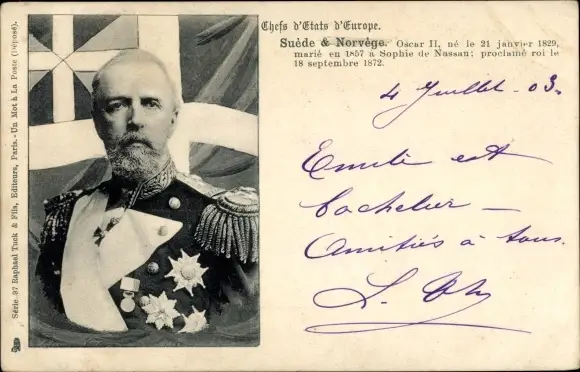 Chefs d'Etats d'Europe.
Suède & Norvège. Oscar II, né le 21 janvier 1829,
marié en 1857 à Sophie de Nassau; proclamé roi le
18 septembre 1872.
4 Juillet - 03.
Emile est
bachelier —
Amitiés à tous.
L.
Série 37 Raphael Tuck & Fils, Editeurs, Paris. - Un Mot à La Poste (Déposé).